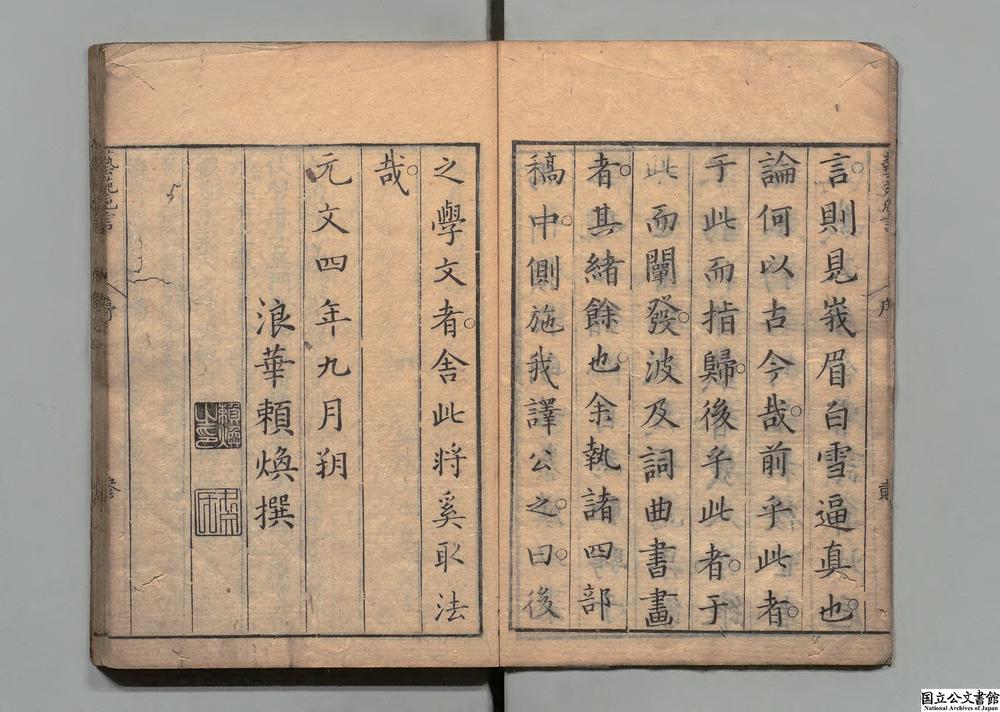 言則見峩眉白雪逼真也。
論何以古今哉。前乎此者。
于此而指歸。後乎此者。于
此而闡發。波及詞曲書畫
者。其緒餘也。余執諸四部
稿中。側施我譯公之。曰。後
之學文者。舍此將奚取法
哉。
元文四年九月朔
浪華頼煥撰
序
貳
序
国立公文書館
National Archives of Japan